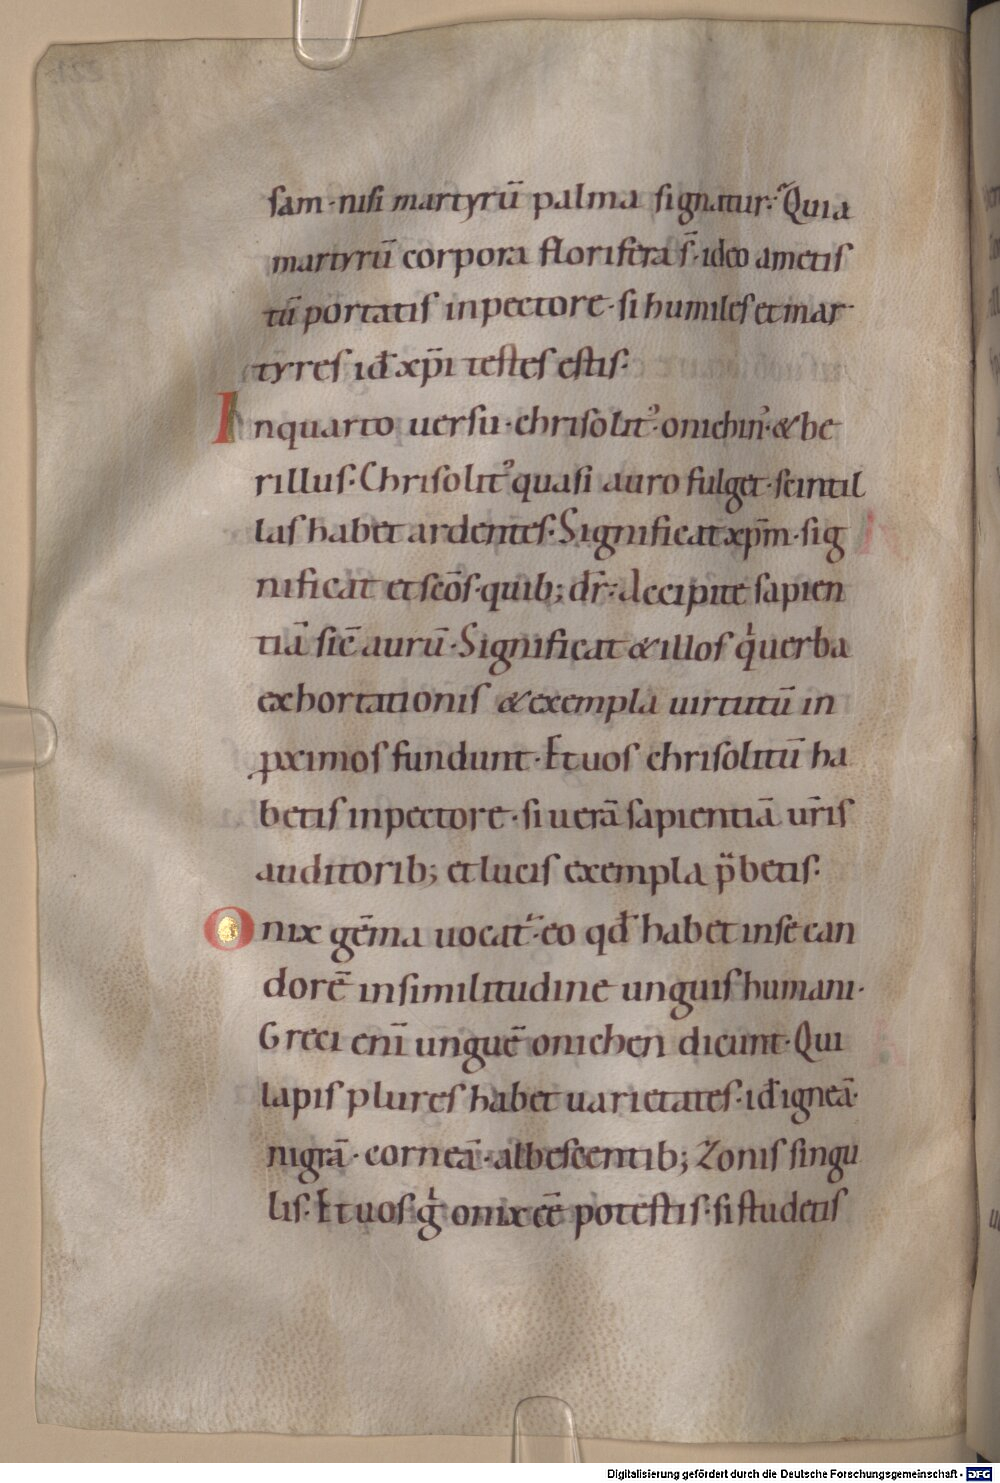 sam· nisi martyrū palma signatur· Quia
martyrū corpora florifera s̄· ideo ametis
tū portatis inpectore· si humiles et mar
tyres id̄ xp̄i testes estis·
Inquarto uersu· chrisolit᾿· onichin᾿· & be
rillus· Chrisolit᾿ quasi auro fulget· scintil
las habet ardentes· Significat xp̄m· sig
nificat et scōs· quib; dr̄· Accipite sapien
tiā sic̄ aurū· Significat & illos qͥ uerba
exhortationis & exempla uirtutū in
ꝓximos fundunt· Et uos chrisolitū ha
betis inpectore· si uerā sapientiā ur̄is
auditorib; et lucis exempla p̄betis·
Onix gēma uocat᷒· eo qd̄ habet inse can
dorē insimilitudine unguis humani·
Greci enī unguē onichen dicunt· Qui
lapis plures habet uarietates· id̄ igneā·
nigrā· corneā· albescentib; Zonis singu
lis· Et uos gͥ onix eē potestis· si studetis
Digitalisierung gefördert durch die Deutsche Forschungsgemeinschaft - DFG